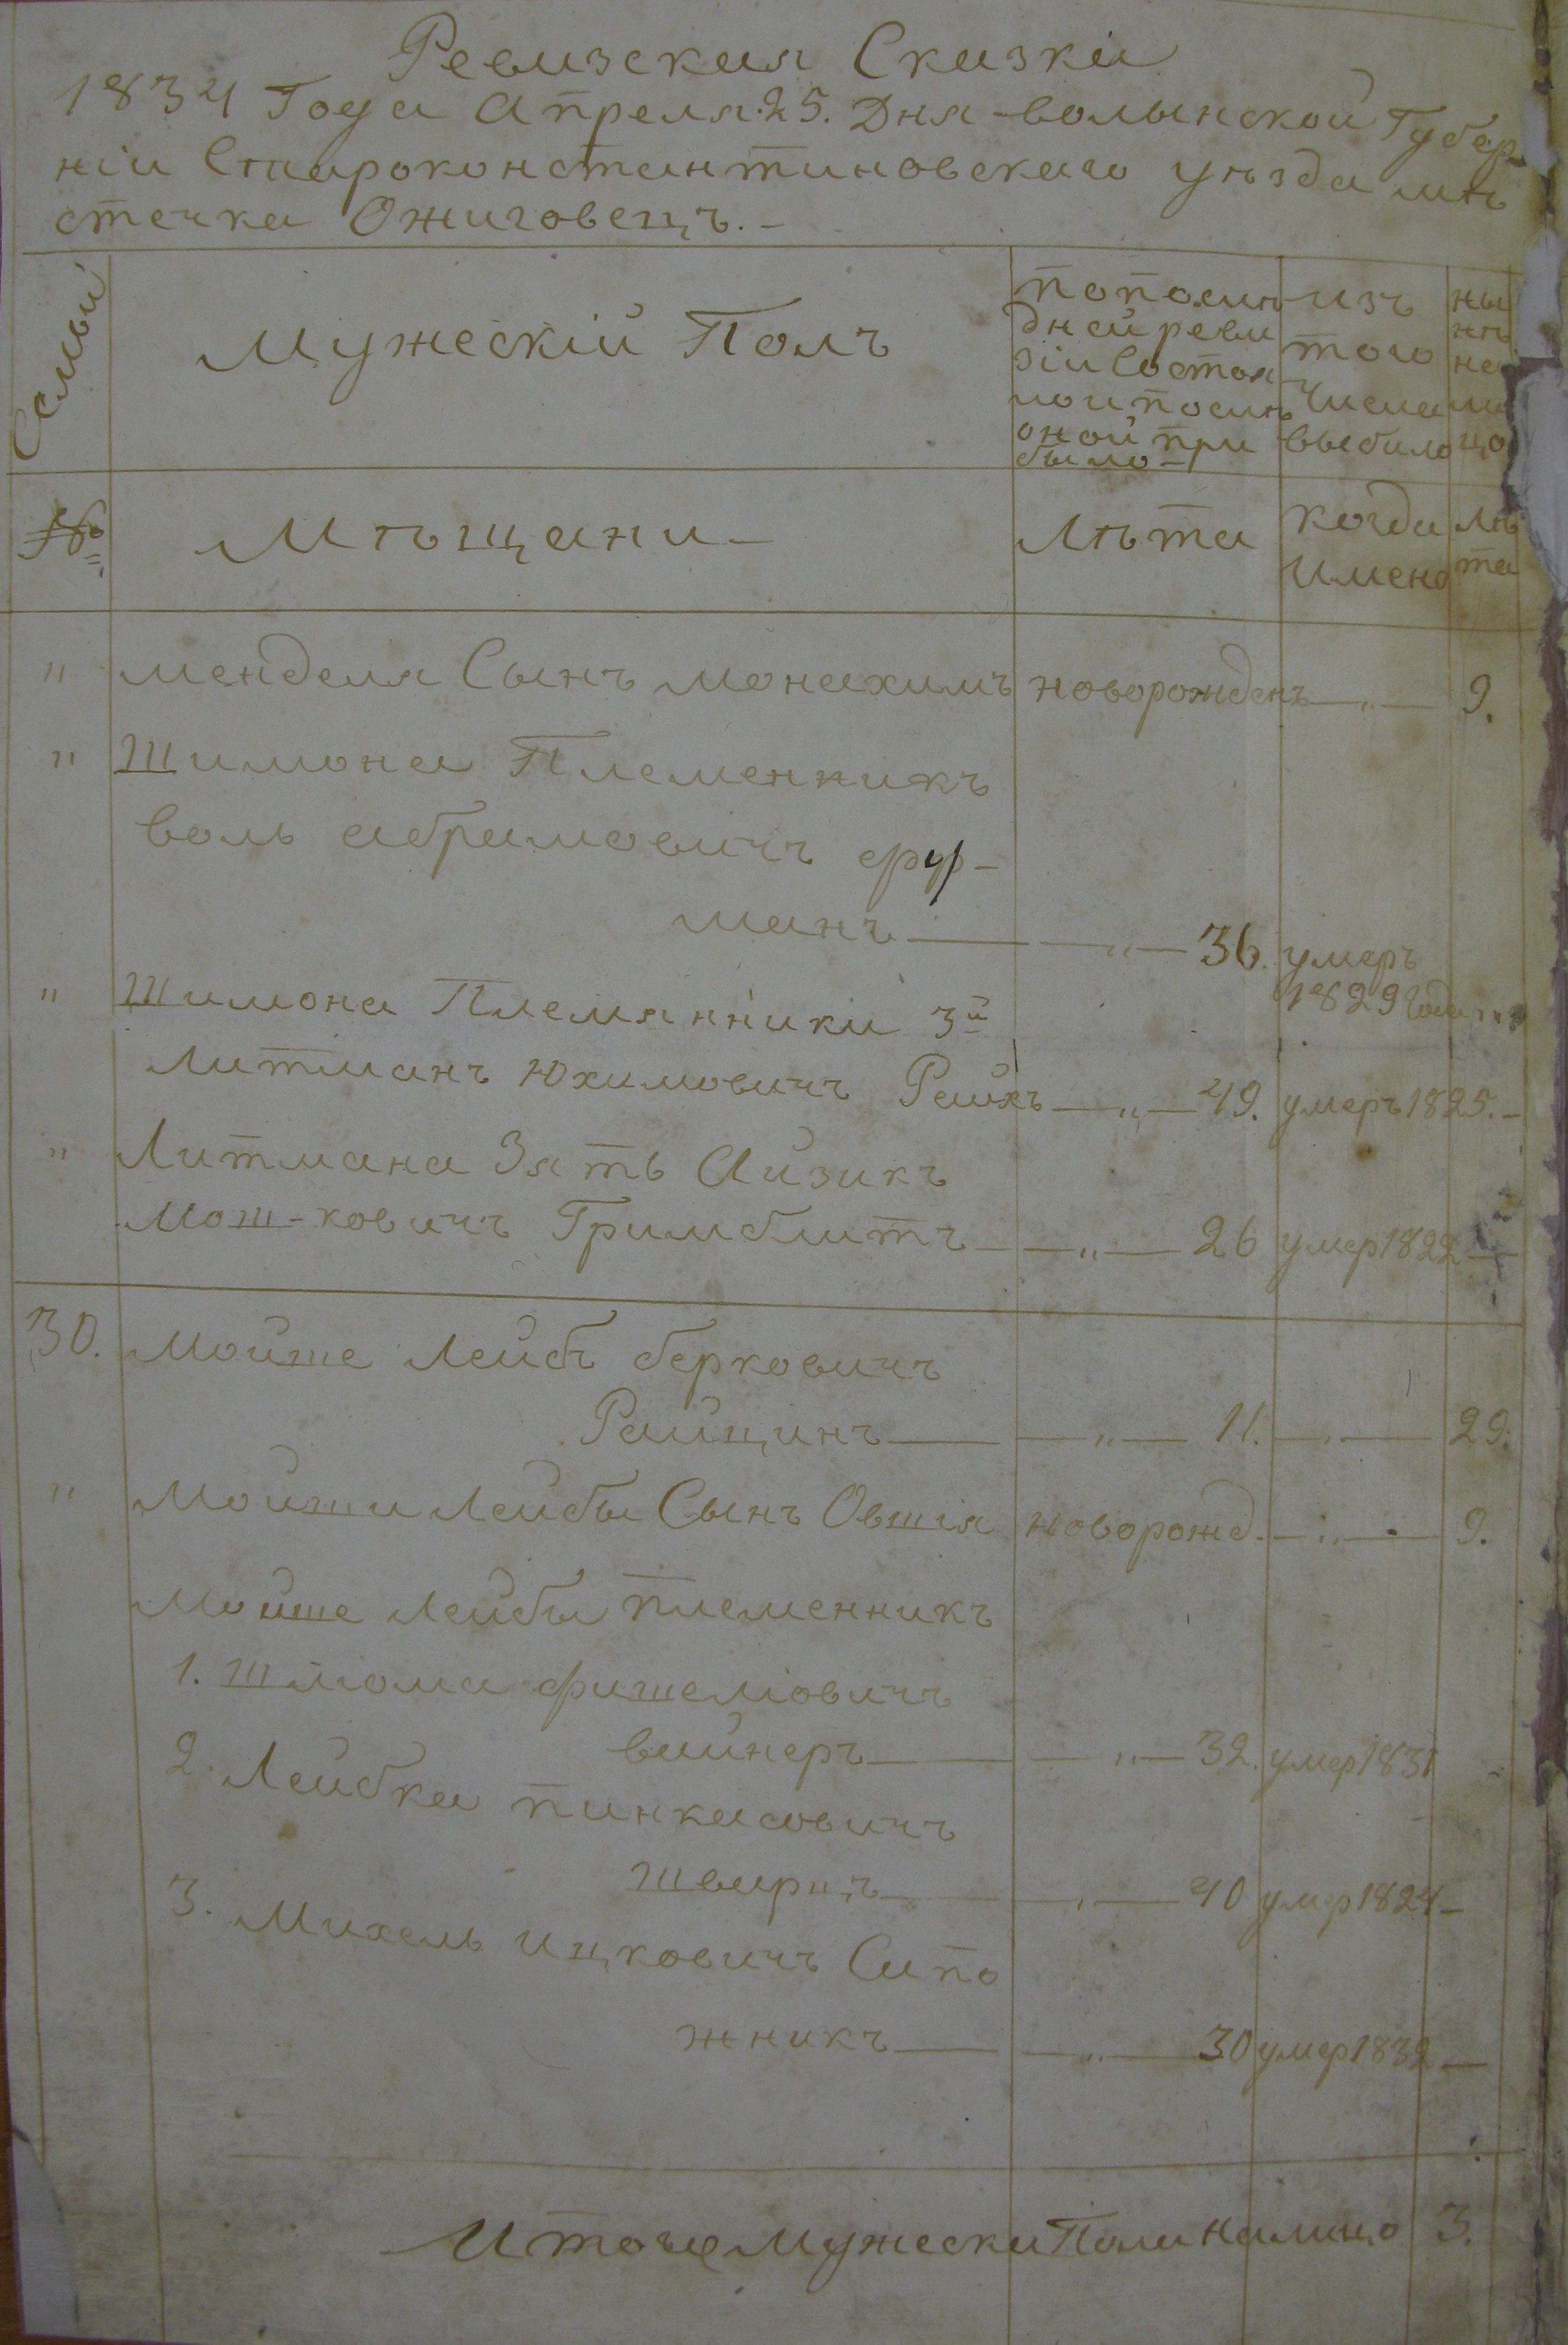 Ревизская Сказка
1834 Года Апреля 25. Дня волынской Губер
ніи Староконстантиновскаго уѣзда мѣ
стечка Ожиговецъ.-
Семьи
Мужескій Полъ
по послѣ
дней реви
зіи Состоя
ло и послѣ
оной при
было-
изъ
того
Числа
выбило
ны
нѣ
на
ли
цо
№
Мѣщани-
Лѣта
когда
Имено
Лѣ
та
" менделя Сынъ Монахимъ новорожденъ — " — 9.
" Шимона Племенникъ
воль абрамовичъ фур-
манъ — " — 36. умеръ
1829 Года
" Шимона Племянники 3й
Литманъ Юхимовичъ Райхъ — " — 49. умеръ 1825. -
" Литмана Зять Айзикъ
Мош-ковичъ Гримблитъ — " — 26 умер 1822 —
30. Мойше Лейбъ берковичъ
Райцинъ — " — 11. — " — 29.
" Мойши Лейбы Сынъ Овшія новорожд. — " — 9.
Мойше Лейбы племенникъ
1. Шлома фишеліовичъ
вайнеръ — " — 32. умер 1831
2. Лейбка пинкасовичъ
Шварцъ — " — 40 умер 1824 -
3. Михель ицковичъ Сапо
жникъ — " — 30 умер 1832 —
Итого Мужеска Пола Налицо 3.